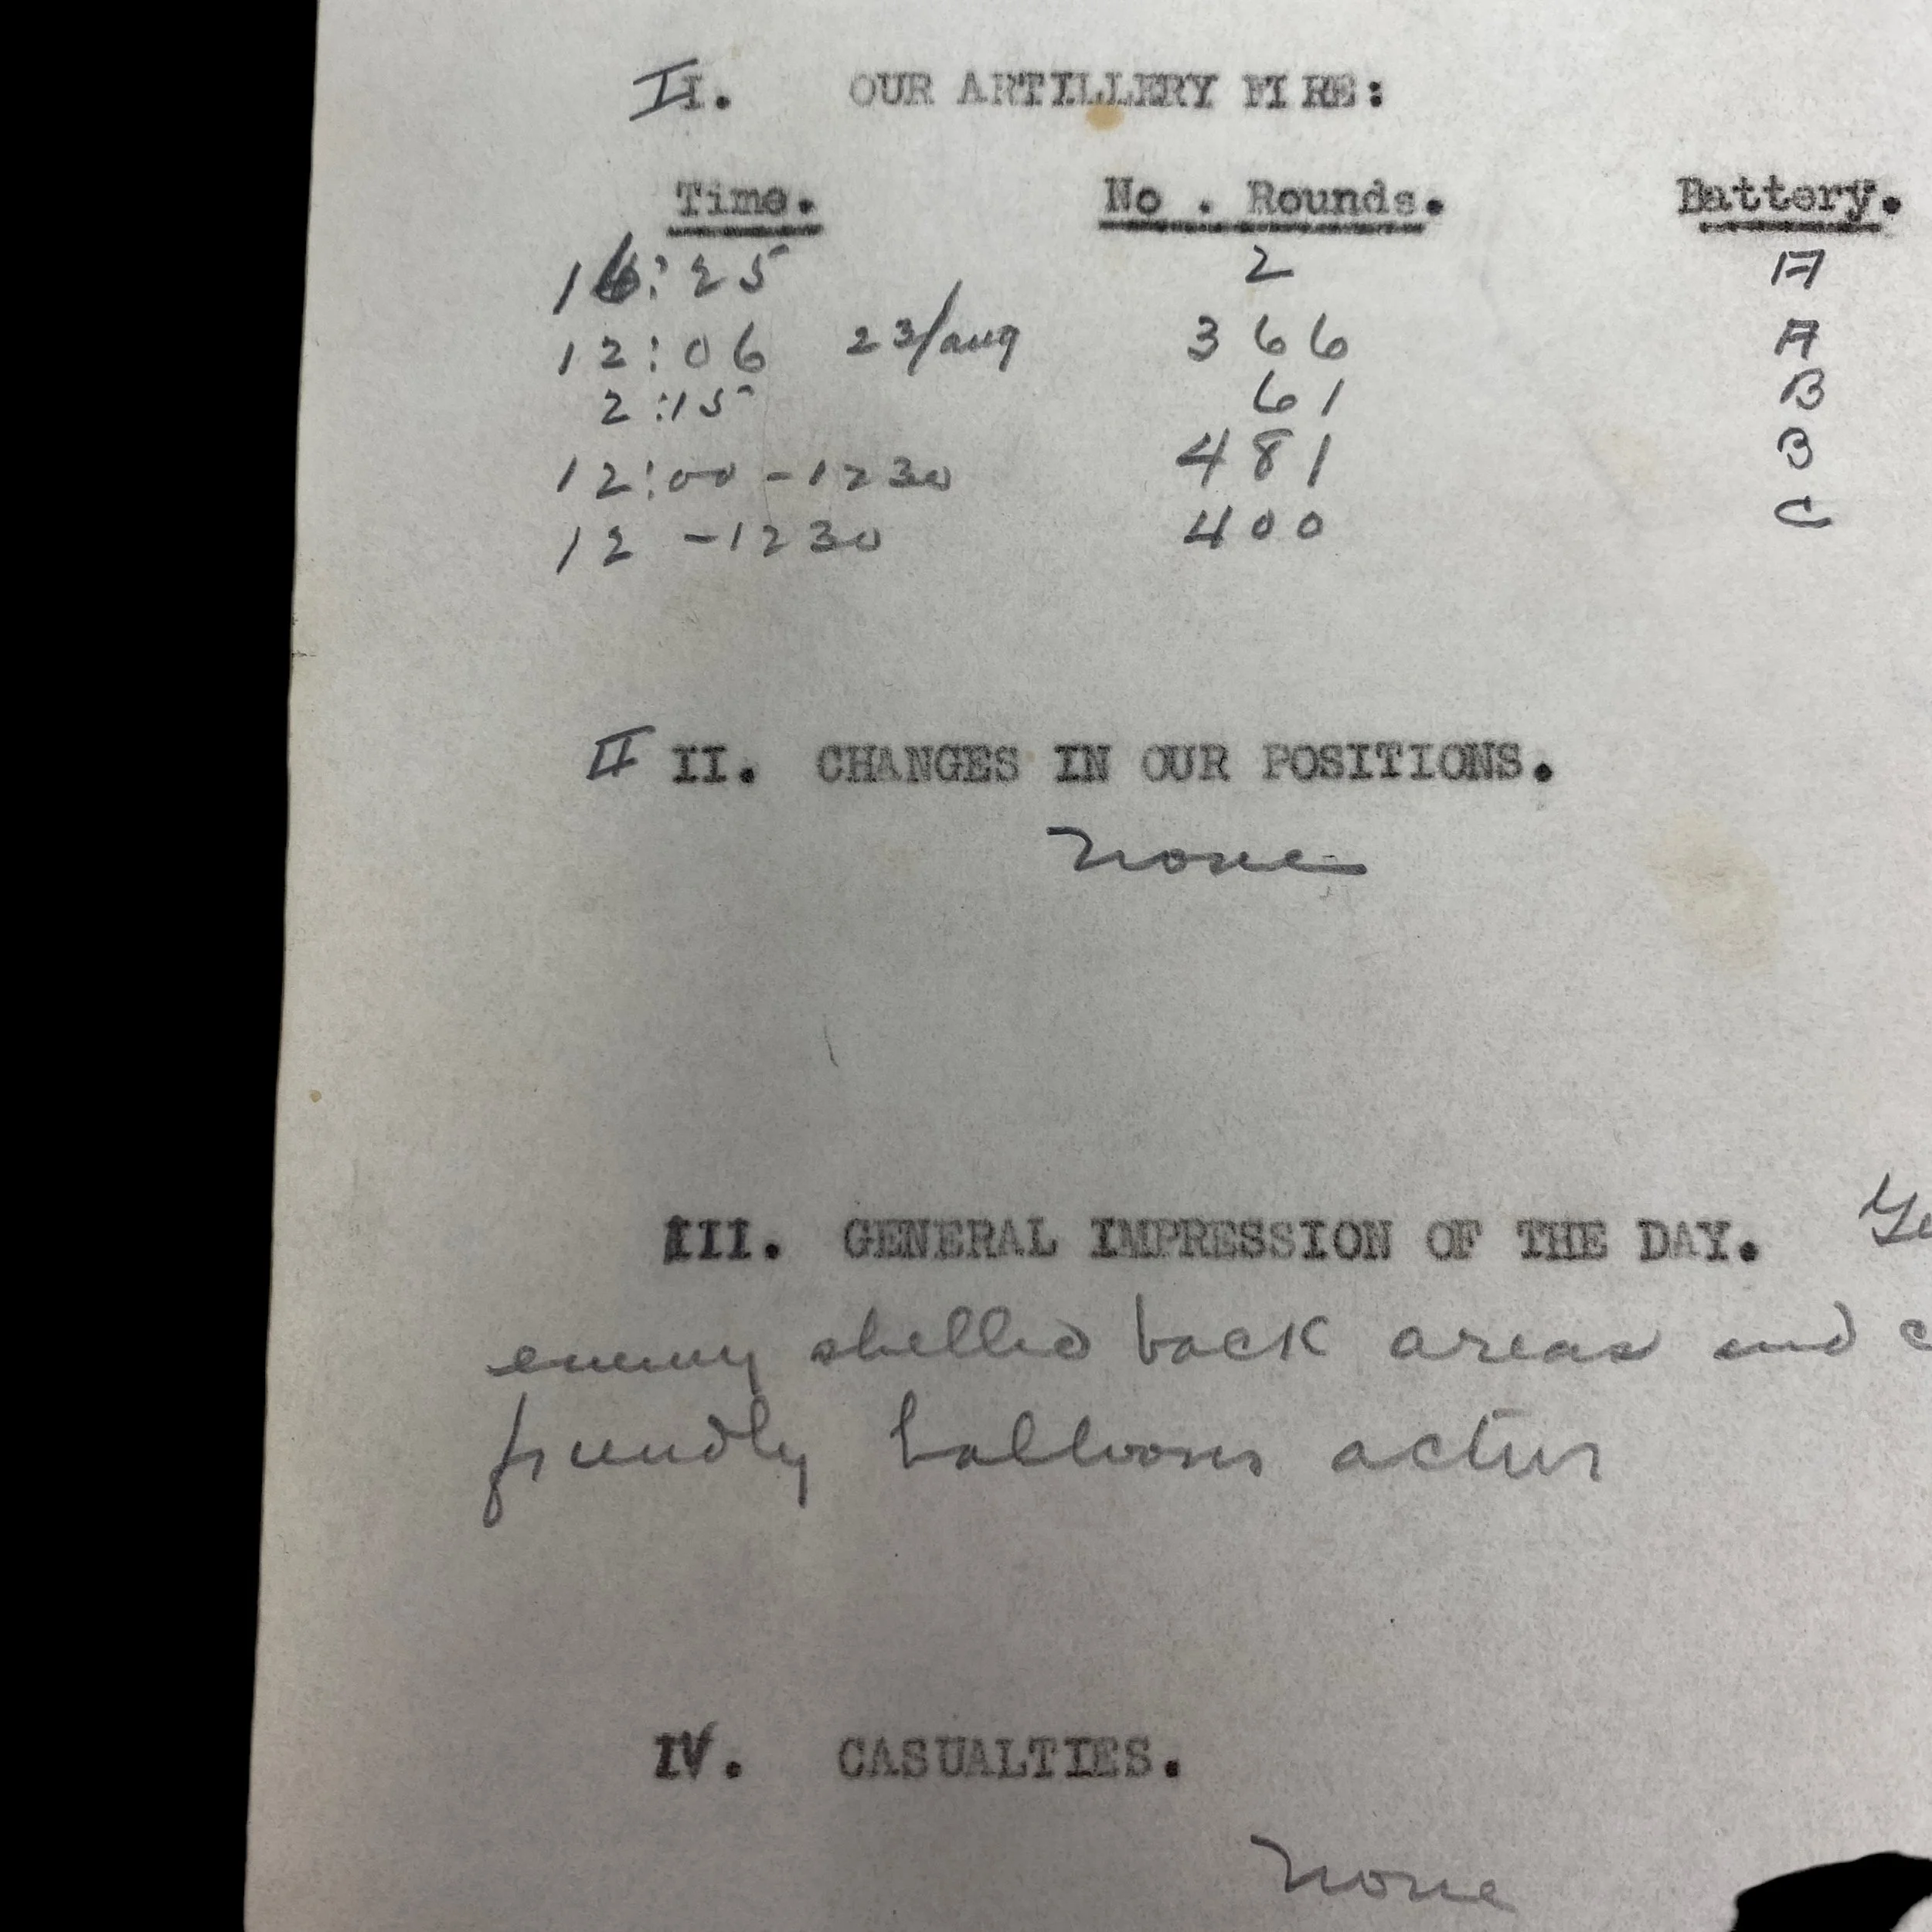 II. OUR ARTILLERY FIRE:
Time. No . Rounds. Battery.
16:25 2 A
12:06 23/aug 366 A
2:15 61 B
12:00-1230 481 B
12 -1230 400 C
II II. CHANGES IN OUR POSITIONS.
none
III. GENERAL IMPRESSION OF THE DAY.
enemy shelled back areas and
friendly balloons active
IV. CASUALTIES.
none